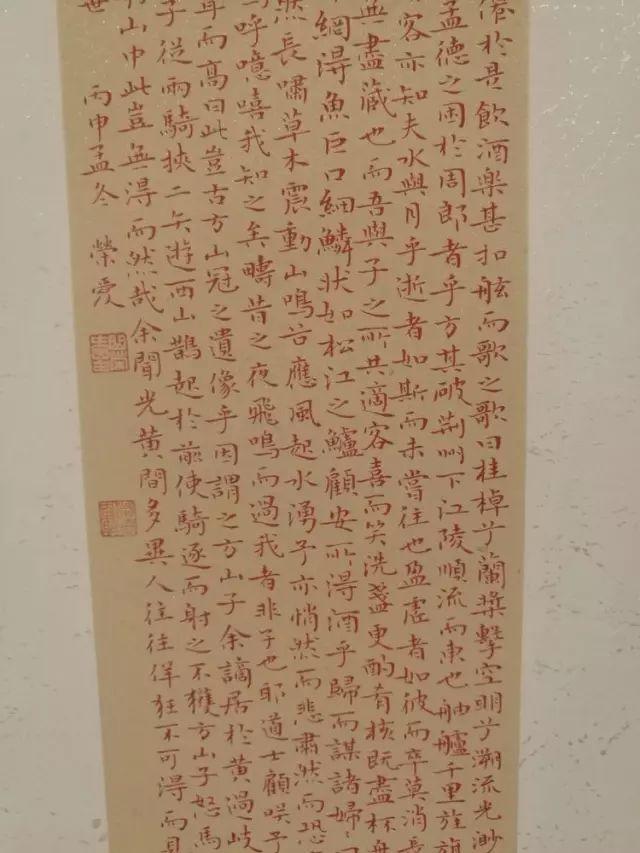 僊於是飲酒樂甚扣舷而歌之歌曰桂棹兮蘭槳擊空明兮溯流光渺
孟德之困於周郎者乎方其破荊州下江陵順流而東也舳艫千里旌旗
客亦知夫水與月乎逝者如斯而未嘗往也盈虛者如彼而卒莫消長
無盡藏也而吾與子之所共適客喜而笑洗盞更酌肴核既盡杯
網得魚巨口細鱗狀如松江之鱸顧安所得酒乎歸而謀諸婦
然長嘯草木震動山鳴谷應風起水湧予亦悄然而悲肅然而恐
呼噫嘻我知之矣疇昔之夜飛鳴而過我者非子也耶道士顧咲予
聳而高曰此豈古方山冠之遺像乎因謂之方山子余謫居於黃過岐
子從兩騎挾二矢遊西山鵲起於前使騎逐而射之不獲方山子怒馬
山中此豈無得而然哉余聞光黃間多異人往往佯狂不可得而見
丙申孟冬 榮愛